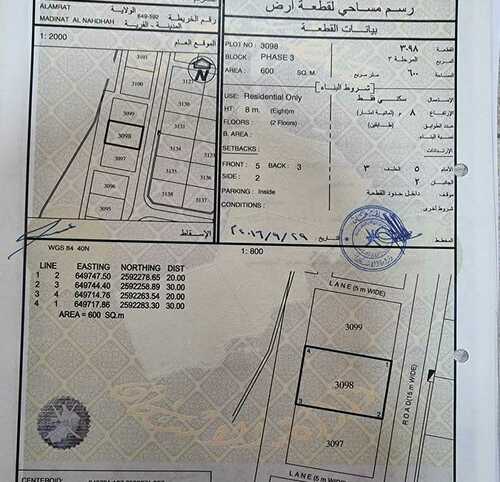 رسم مساحي لقطعة أرض
بيانات القطعة
ALAMRAT الولاية
MADINAT AL NAHDHAH المدينة - القرية
649-592 رقم الخريطة
1: 2000 الموقع العام
PLOT NO 3098 ٣٠٩٨ القطعة
BLOCK : PHASE 3 المرحلة ٣ المربع
AREA : 600 SQ. M ٦٠٠ متر مربع المساحة
شروط البناء
USE: Residential Only سكني فقط الإستعمال
HT: 8 m. (Eight)m ٨ (ثمانية أمتار) الإرتفاع
FLOORS : (2 Floors) (طابقين) عدد الطوابق
B. AREA : مساحة البناء
SETBACKS : الإرتدادات
FRONT : 5 BACK : 3 ٣ الخلف ٥ الأمام
SIDE : 2 ٢ الجانبان
PARKING : Inside داخل حدود القطعة موقف
CONDITIONS : شروط أخرى
التاريخ المخطط
3099
3098
3097
3096
3095
3121
3131
3132
3133
3134
3135
3136
3137
N
الإسقاط
WGS 84 40N
1: 800
LINE EASTING NORTHING DIST
1 2 649747.50 2592278.65 20.00
2 3 649744.40 2592258.89 30.00
3 4 649714.76 2592263.54 20.00
4 1 649717.86 2592283.30 30.00
AREA = 600 SQ.m
LANE (5 m WIDE)
3099
4 1
3098
3 2
3097
ROAD (15 m WIDE)
LANE (5 m WIDE)
CENTEROID